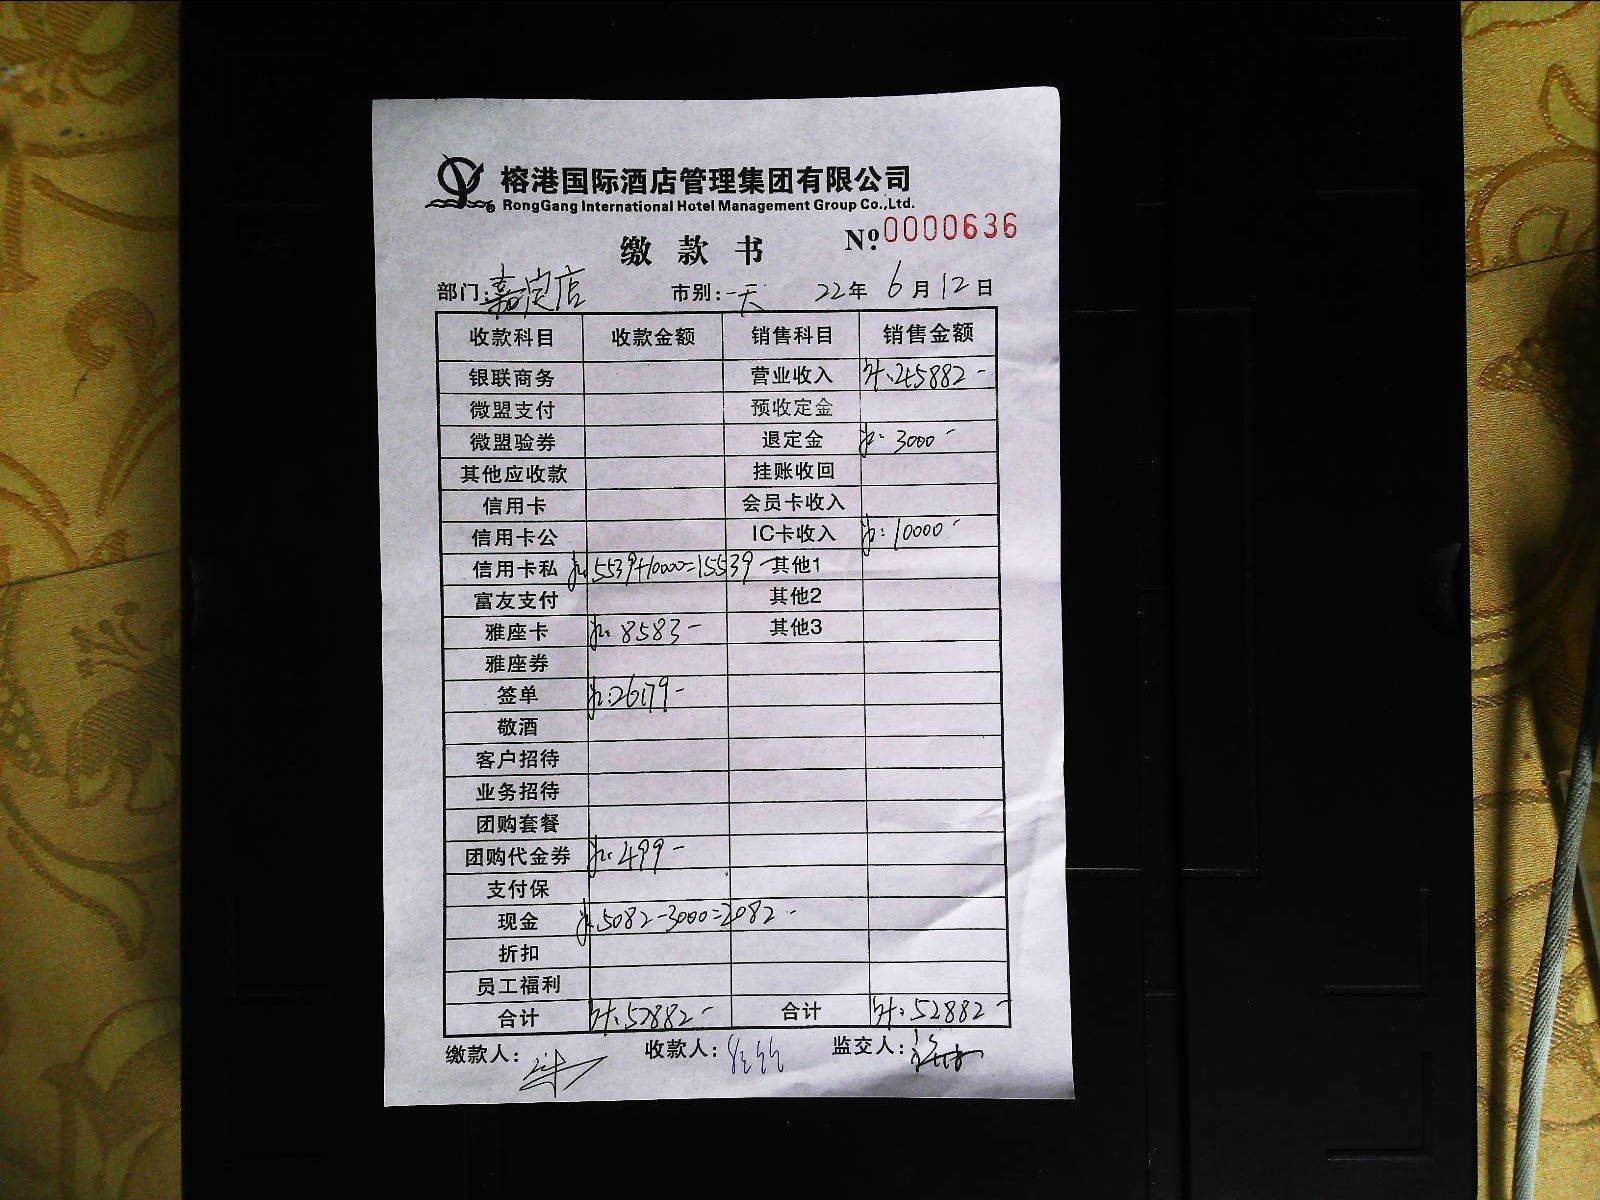 榕港国际酒店管理集团有限公司
RongGang International Hotel Management Group Co.,Ltd.
缴款书 Nº 0000636
部门:嘉定店 市别:一天 22年6月12日
收款科目 收款金额 销售科目 销售金额
银联商务 营业收入 45882-
微盟支付 预收定金
微盟验券 退定金 3000-
其他应收款 挂账收回
信用卡 会员卡收入
信用卡公 IC卡收入 10000-
信用卡私 5539+10000=15539- 其他1
富友支付 其他2
雅座卡 8583- 其他3
雅座券
签单 26179-
敬酒
客户招待
业务招待
团购套餐
团购代金券 499-
支付保
现金 5082-3000=2082-
折扣
员工福利
合计 52882- 合计 52882-
缴款人: 收款人: 监交人: